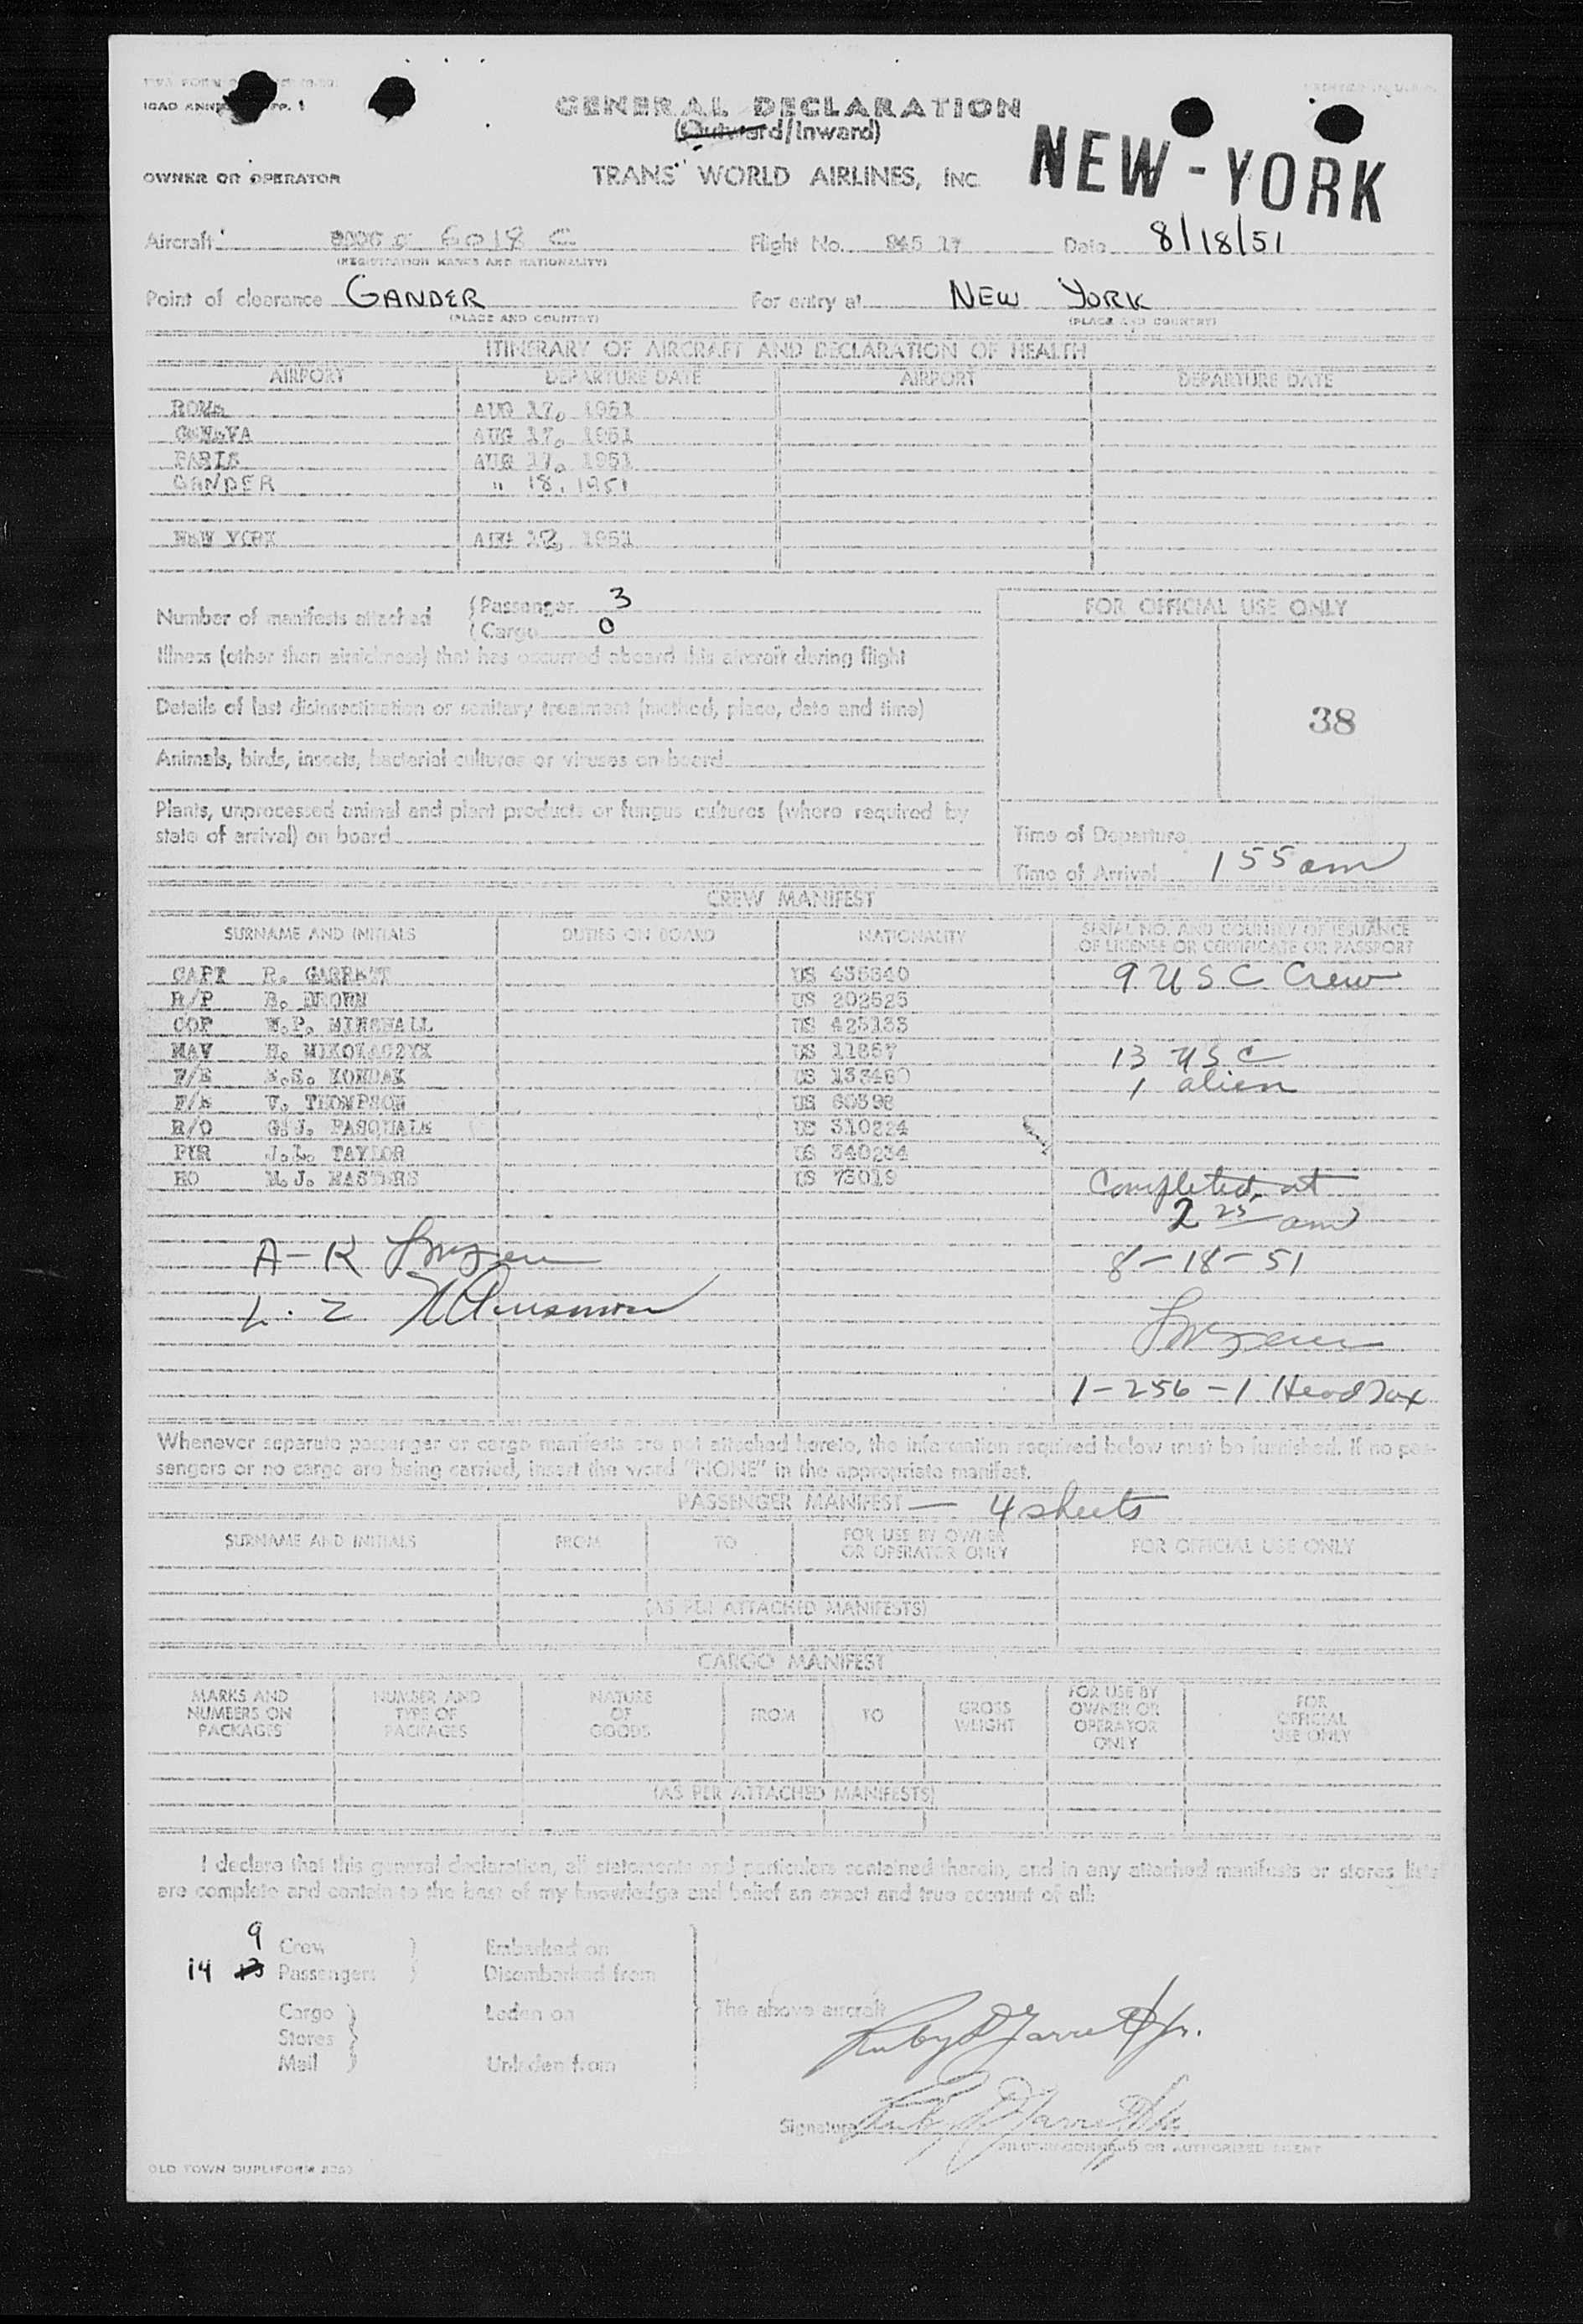 ICAO ANNEX
GENERAL DECLARATION
(Outward/Inward)
OWNER OR OPERATOR TRANS WORLD AIRLINES, INC.
NEW-YORK
Aircraft 6018 C Flight No. Date 8/18/51
(REGISTRATION MARKS AND NATIONALITY)
Point of clearance GANDER For entry at NEW YORK
(PLACE AND COUNTRY) (PLACE AND COUNTRY)
ITINERARY OF AIRCRAFT AND DECLARATION OF HEALTH
AIRPORT DEPARTURE DATE AIRPORT DEPARTURE DATE
ROME AUG 17, 1951
GENEVA AUG 17, 1951
PARIS AUG 17, 1951
GANDER " 18, 1951
NEW YORK AUG 1951
Number of manifests attached (Passenger 3
(Cargo 0
FOR OFFICIAL USE ONLY
Illness (other than airsickness) that has occurred aboard this aircraft during flight
Details of last disinsectization or sanitary treatment (method, place, date and time)
38
Animals, birds, insects, bacterial cultures or viruses on board
Plants, unprocessed animal and plant products or fungus cultures (where required by
state of arrival) on board
Time of Departure
Time of Arrival 1 55 am
CREW MANIFEST
SURNAME AND INITIALS DUTIES ON BOARD NATIONALITY SERIAL NO. AND COUNTRY OF ISSUANCE
OF LICENSE OR CERTIFICATE OR PASSPORT
CAPT R. GARRETT US 435340 9 USC Crew
R/P B. BROWN US 202525
COP W.P. MINSHALL US 425133
NAV H. MIKOLACZYK US 11857 13 USC
F/E KONDAK US 133480 1 alien
F/E V. THOMPSON US 60398
R/O G.J. PASQUALE US 310224
PUR J.L. TAYLOR US 340234
HO M.J. MASTERS US 73019 Completed at
2 25 am
A-R
8-18-51
L. Z
1-256-1 Head Tax
Whenever separate passenger or cargo manifests are not attached hereto, the information required below must be furnished. If no pas-
sengers or no cargo are being carried, insert the word "NONE" in the appropriate manifest.
PASSENGER MANIFEST — 4 sheets
SURNAME AND INITIALS FROM TO FOR USE BY OWNER
OR OPERATOR ONLY FOR OFFICIAL USE ONLY
(AS PER ATTACHED MANIFESTS)
CARGO MANIFEST
MARKS AND
NUMBERS ON
PACKAGES NUMBER AND
TYPE OF
PACKAGES NATURE
OF
GOODS FROM TO GROSS
WEIGHT FOR USE BY
OWNER OR
OPERATOR
ONLY FOR
OFFICIAL
USE ONLY
(AS PER ATTACHED MANIFESTS)
I declare that this general declaration, all statements and particulars contained therein, and in any attached manifests or stores lists
are complete and contain to the best of my knowledge and belief an exact and true account of all:
9 Crew Embarked on
14 13 Passengers Disembarked from
Cargo Laden on The above aircraft
Stores
Mail Unladen from
Ruby D Garrett Jr.
Signature Ruby D Garrett Jr.
OR AUTHORIZED AGENT
OLD TOWN DUPLIFORM